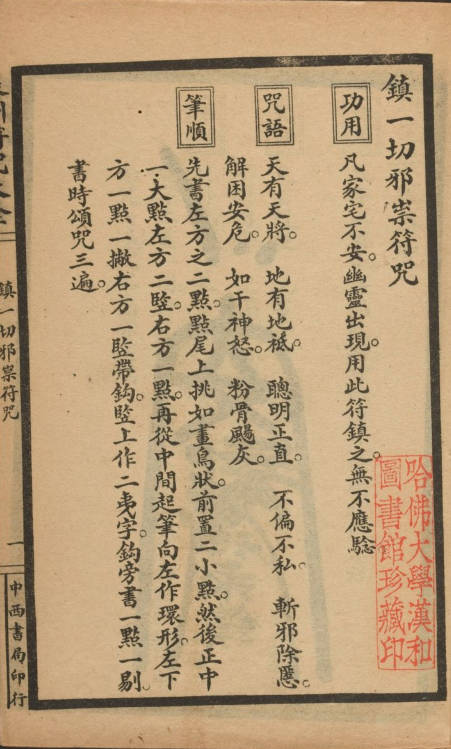 鎮一切邪祟符咒
功用
凡家宅不安。幽靈出現。用此符鎮之。無不應驗
咒語
天有天將。地有地祗。聰明正直。不偏不私。斬邪除惡。
解困安危。如干神怒。粉骨颺灰。
筆順
先書左方之二點。點尾上挑如畫鳥狀。前置二小點。然後正中
一大點。左方二豎。右方一點。再從中間起筆向左作環形。左下
方一點一撇。右方一豎帶鈎。豎上作二夷字。鈎旁書一點一剔。
書時頌咒三遍。
哈佛大學漢和
圖書館珍藏印
符咒大全
鎮一切邪祟符咒
一
中西書局印行